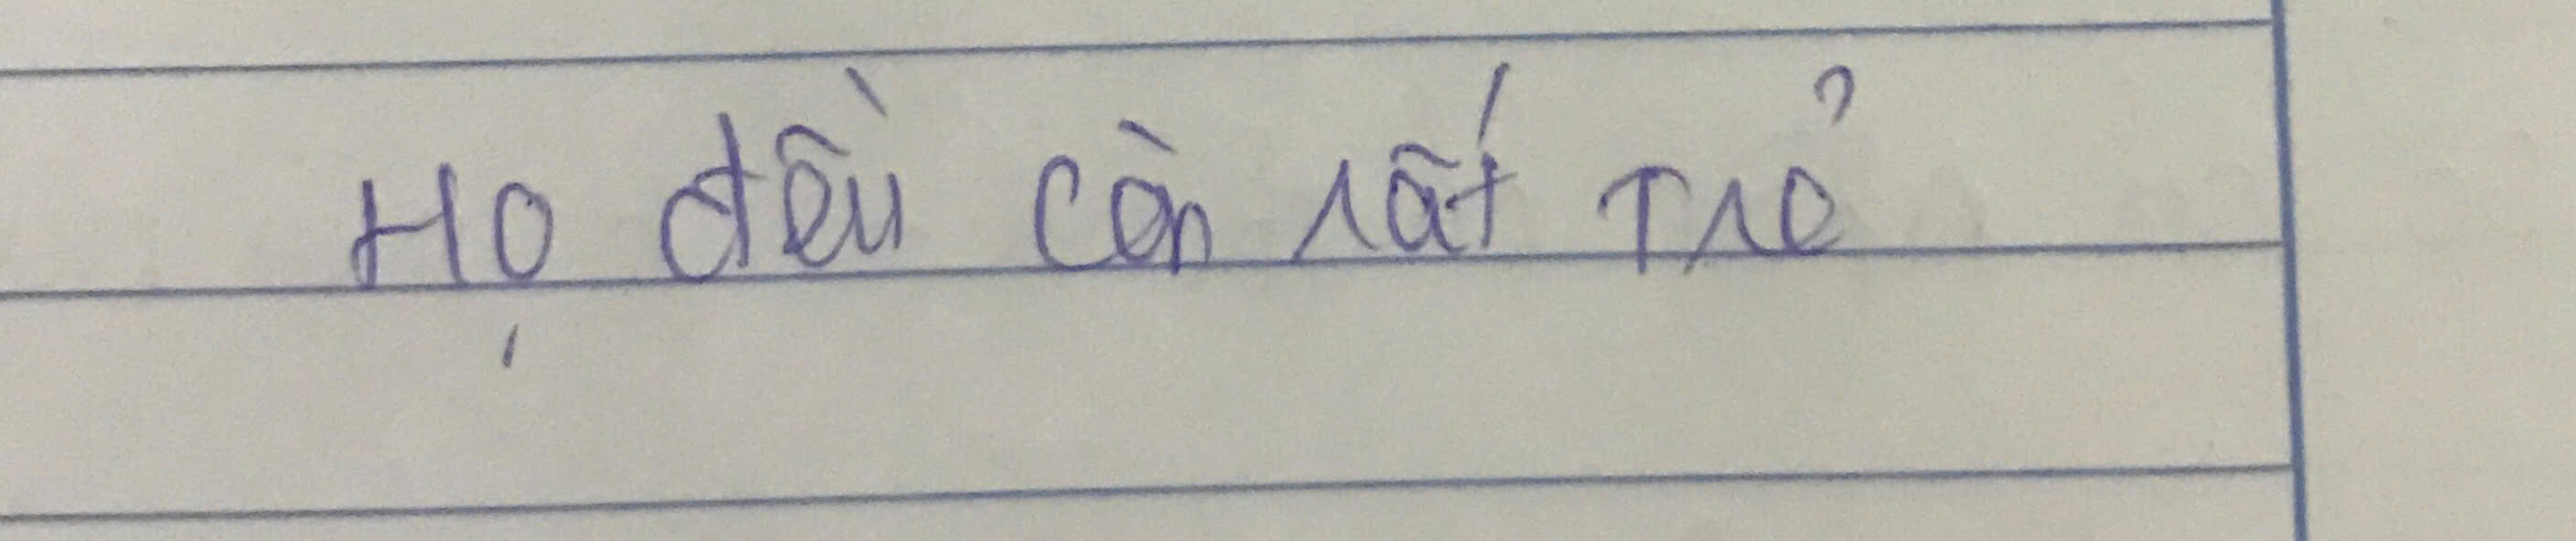 Họ đều còn rất trẻ